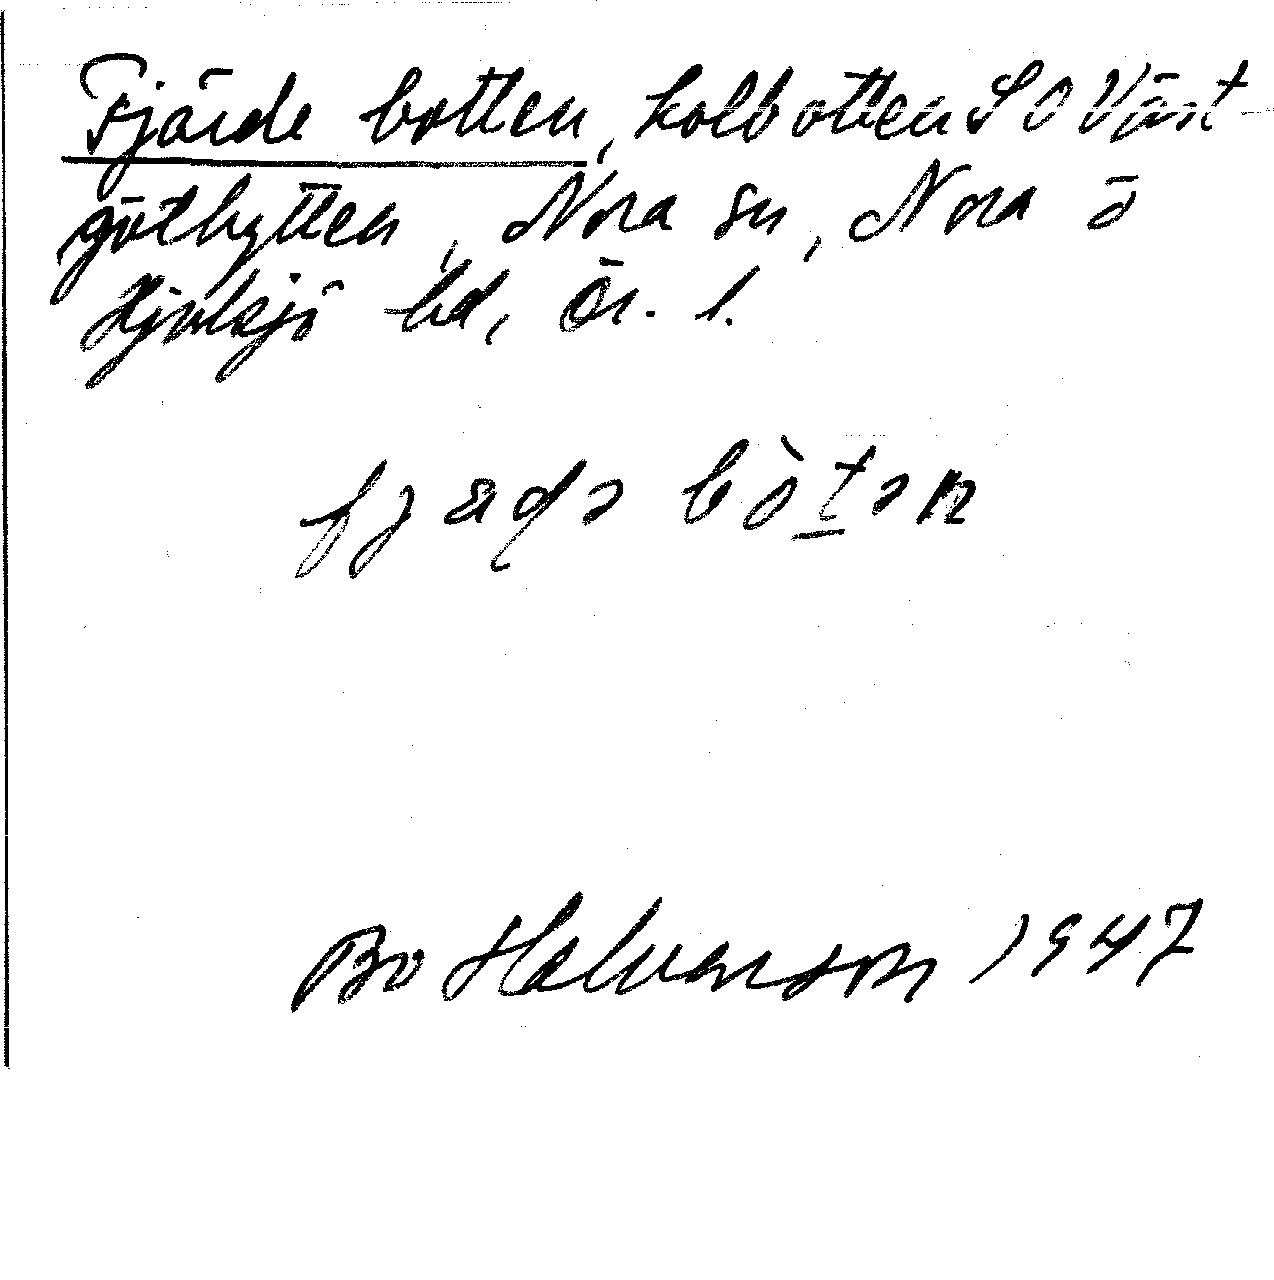 Fjärde botten, kolbotten S O Väst-
göthytten, Nora sn, Nora o
Hjulsjö bd, Ör. l.
fjæɖə bòt̲ən
Bo Halvarson 1947